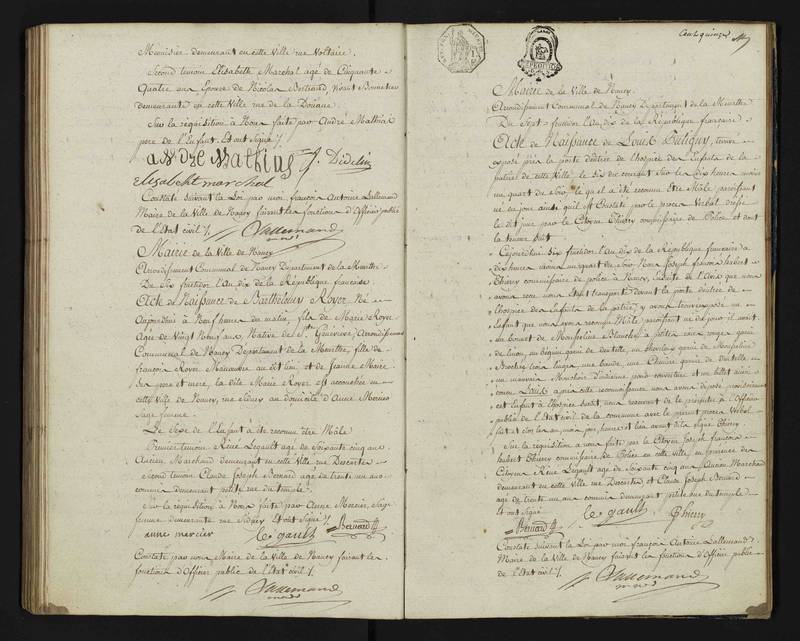 Menuisier demeurant en cette Ville rue Voltaire.
Second temoin Elisabeth Marchal agé de Cinquante
Quatre ans Epouse de Nicolas Bertrand, vivant Bonnetier
demeurante en cette Ville rue de la Douane
Sur la réquisition à Nous faite par André Mathieu
pere de l'Enfant. Et ont Signé /.
andre Mathius J. Didelin
Elisabeht marchal
Constaté suivant la Loi par moi françois Antoine Lallemand
Maire de la Ville de Nancy faisant les fonctions d'Officier public
de l'Etat civil /. Lallemand
Mairie de la Ville de Nancy
Arrondissement Communal de Nancy Département de la Meurthe
Du Six fructidor l'An dix de la République française
Acte de Naissance de Barthélemy Royer Né
Aujourdhui à Neuf heures du matin, fils de Marie Royer
Agée de Vingt Neuf ans, Native de Ste Geneviève, Arrondissement
Communal de Nancy Departement de la Meurthe, fille de
françois Royer Manoeuvre au dit lieu et de Jeanne Marie
Ses pere et mere, la dite Marie Royer est accouchée en
cette Ville de Nancy, rue Sidney au domicile d'Anne Mercier
Sage femme.
Le Sexe de l'Enfant a été reconnu être Mâle
Premier temoin René Legault agé de Soixante cinq ans
Ancien Marchand demeurant en cette Ville rue Descartes
Second temoin Claude Joseph Bernard agé de trente un ans
commis demeurant petite rue du temple.
Sur la réquisition à Nous faite par Anne Mercier, Sage
femme demeurante rue Sidney Et ont Signé /.
anne mercier le gault Bernard
Constaté par nous Maire de la Ville de Nancy faisant les
fonctions d'Officier public de l'Etat civil /.
Lallemand
Cent quinze
Mairie de la Ville de Nancy.
Arrondissement Communal de Nancy Département de la Meurthe
Du Sept fructidor l'An dix de la République française
Acte de Naissance de Louis, trouvé
exposé près la porte d'entrée de l'hospice des Enfants de la
patrie de cette Ville, le Six du courant sur les dix heures moins
un quart du Soir lequel a été reconnu être Mâle paroissant
né ce jour ainsi qu'il est Constaté par le procès Verbal dressé
le dit jour par le Citoyen Thiery commissaire de Police et dont
la teneur Suit
Cejourdhui Six fructidor l'An dix de la République française à
dix heures moins un quart du Soir Nous Joseph françois hubert
Thiery commissaire de police à Nancy, ensuite de l'avis que nous
avons reçu nous étant transporté devant la porte d'entrée de
l'hospice des Enfants de la patrie, y avons trouvé exposé un
Enfant que nous avons reconnu Mâle, paroissant né du jour il avoit
un bonnet de Mousseline
un mauvais Mouchoir d'indienne pour couverture et un billet ainsi
conçu Louis après cette reconnoissance nous avons déposé provisoirement
cet Enfant à l'hospice Susdit, nous reservant de le présenter à l'Officier
public de l'Etat civil de la commune avec le présent procès Verbal
fait et clos les an, mois, jour, heure et lieu avant dits Signé Thiery
Sur la requisition à nous faite par le Citoyen Joseph françois
hubert Thiery commissaire de Police en cette ville, en presence des
Citoyens René Legault agé de Soixante cinq ans Ancien Marchand
demeurant en cette Ville rue Descartes et Claude Joseph Bernard
agé de trente un ans commis demeurant petite rue du temple
Et ont Signé
le gault Thiery
Bernard
Constaté suivant la Loi par moi françois Antoine Lallemand
Maire de la Ville de Nancy faisant les fonctions d'Officier public
de l'Etat civil /. Lallemand